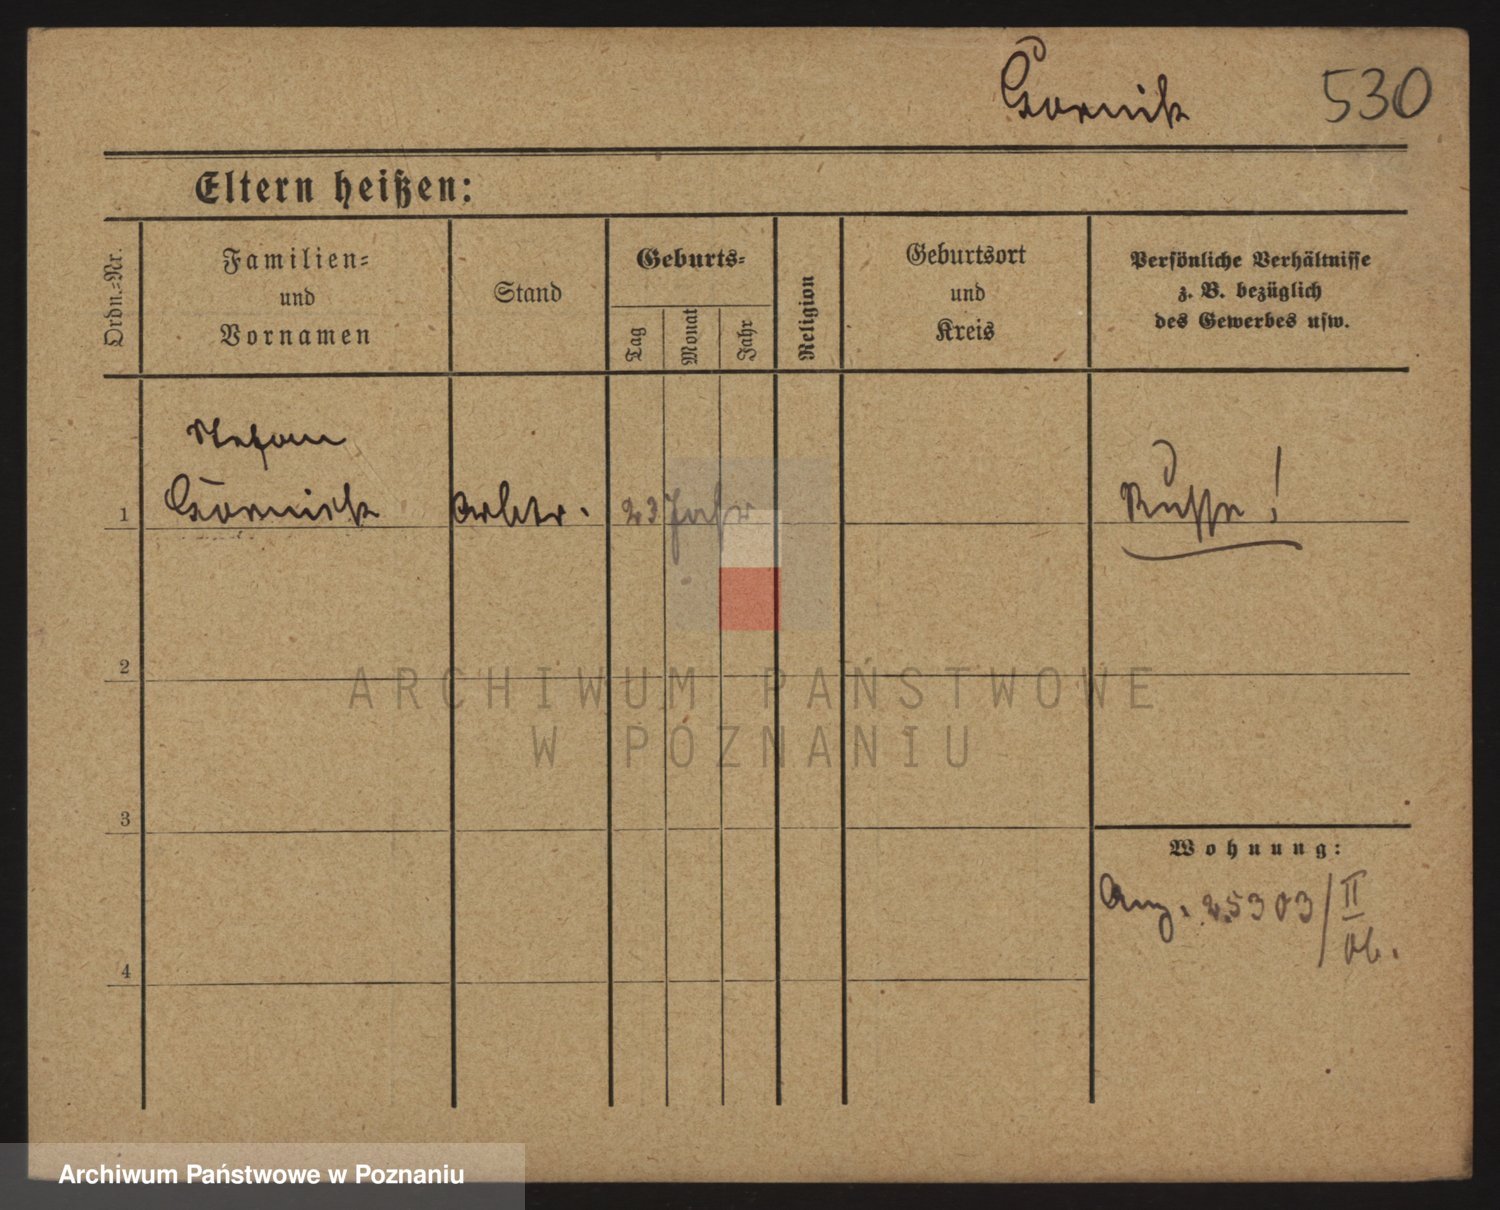 Górnik 530
Eltern heißen:
Ordn.-Nr.
Familien-
und
Vornamen
Stand
Geburts-
Tag
Monat
Jahr
Religion
Geburtsort
und
Kreis
Persönliche Verhältnisse
z. B. bezüglich
des Gewerbes usw.
Stefan
1 Górnick Arbtr. 23 Jahr Russe!
2
ARCHIWUM PAŃSTWOWE
W POZNANIU
3
Wohnung:
Anz. 25303/II
06.
4
Archiwum Państwowe w Poznaniu